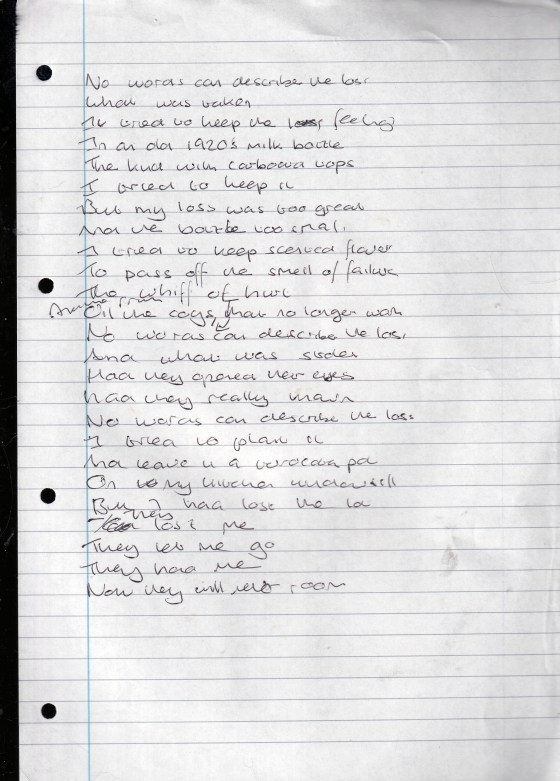 No words can describe the loss
What was taken
I tried to keep the loss feeling
In an old 1920's milk bottle
The kind with cardboard tops
I tried to keep it
But my loss was too great
And the bottle too small.
I tried to keep scented flower
To pass off the smell of failure
The whiff of hurt
Oil the cogs, that no longer
No words can describe the loss,
And what was stolen
Had they opened their eyes
Had they really
No words can describe the loss
I tried to plant it
And leave it a terracotta pot
On to my kitchen
But I had lost the
They lost me
They let me go
They had me
Now they will room